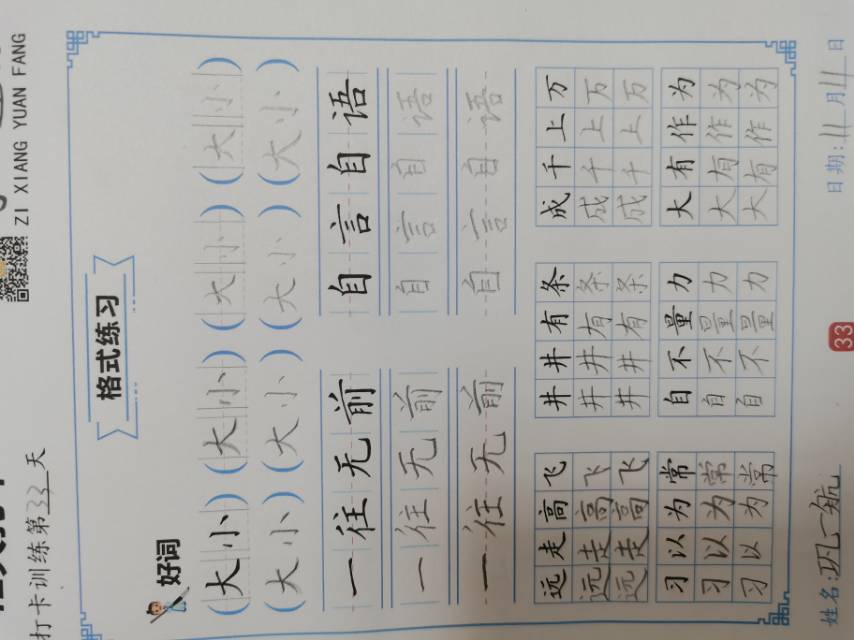 ZI XIANG YUAN FANG
打卡训练第33天
格式练习
好词
(大小)(大小)(大小)(大小)
(大小)(大小)(大小)(大小)
一往无前 自言自语
一往无前 自言自语
一往无前 自言自语
远走高飞 井井有条 成千上万
远走高飞 井井有条 成千上万
远走高飞 井井有条 成千上万
习以为常 自不量力 大有作为
习以为常 自不量力 大有作为
习以为常 自不量力 大有作为
姓名:巩一航 33 日期:11月11日